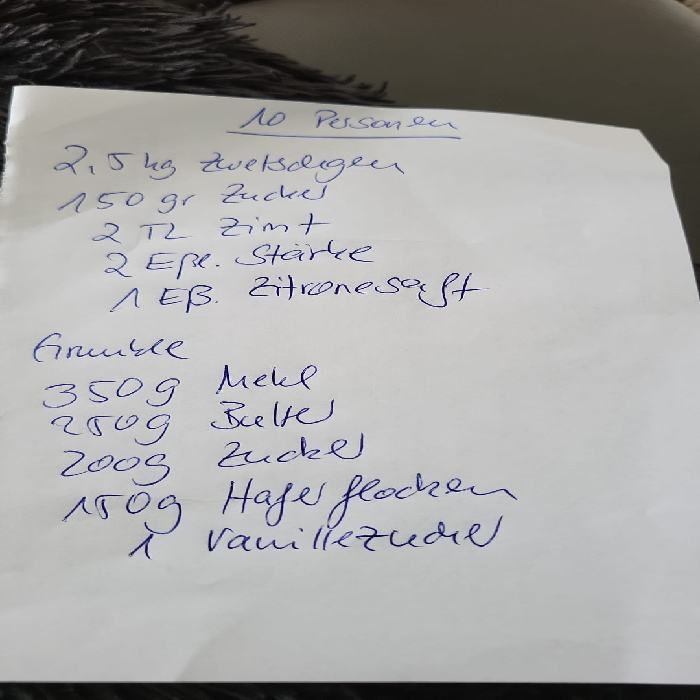 10 Personen
2,5 kg Zwetschgen
150 gr Zucker
2 TL Zimt
2 Eßl. Stärke
1 Eß. Zitronesaft
350g Mehl
250g Butter
200g Zucker
150g Haferflocken
1 Vanillezucker